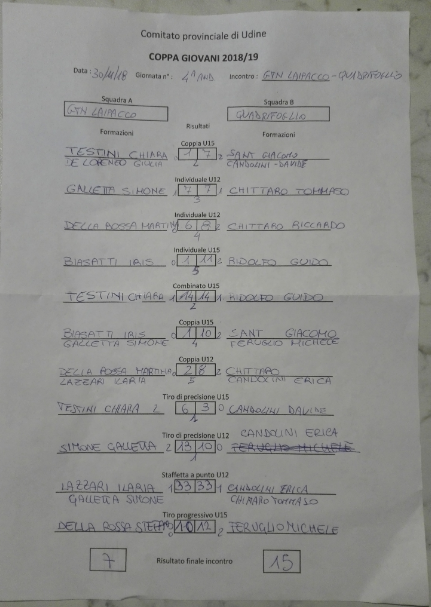 Comitato provinciale di Udine
COPPA GIOVANI 2018/19
Data : 30/11/18 Giornata n°: 4ª AND Incontro : GTN LAIPACCO - QUADRIFOGLIO
Squadra A Squadra B
GTN LAIPACCO QUADRIFOGLIO
Formazioni Risultati Formazioni
Coppia U15
TESTINI CHIARA 0 1 7 2 SANT GIACOMO
DE LORENZO GIULIA 2 CANDOLINI - DAVIDE
Individuale U12
GALLETTA SIMONE 1 7 7 1 CHITTARO TOMMASO
3
Individuale U12
DELLA ROSSA MARTINA 0 6 8 2 CHITTARO RICCARDO
4
Individuale U15
BIASATTI IRIS 0 1 11 2 RIDOLFO GUIDO
5
Combinato U15
TESTINI CHIARA 1 14 14 1 RIDOLFO GUIDO
2
Coppia U15
BIASATTI IRIS 0 1 10 2 SANT GIACOMO
GALLETTA SIMONE 4 FERUGLIO MICHELE
Coppia U12
DELLA ROSSA MARTINA 0 2 8 2 CHITTARO
LAZZARI ILARIA 5 CANDOLINI ERICA
Tiro di precisione U15
TESTINI CHIARA 2 6 3 0 CANDOLINI DAVIDE
Tiro di precisione U12 CANDOLINI ERICA
SIMONE GALLETTA 2 13 10 0 FERUGLIO MICHELE
1
Staffetta a punto U12
LAZZARI ILARIA 1 33 33 1 CANDOLINI ERICA
GALLETTA SIMONE CHITTARO TOMMASO
Tiro progressivo U15
DELLA ROSSA 0 10 12 2 FERUGLIO MICHELE
7 Risultato finale incontro 15